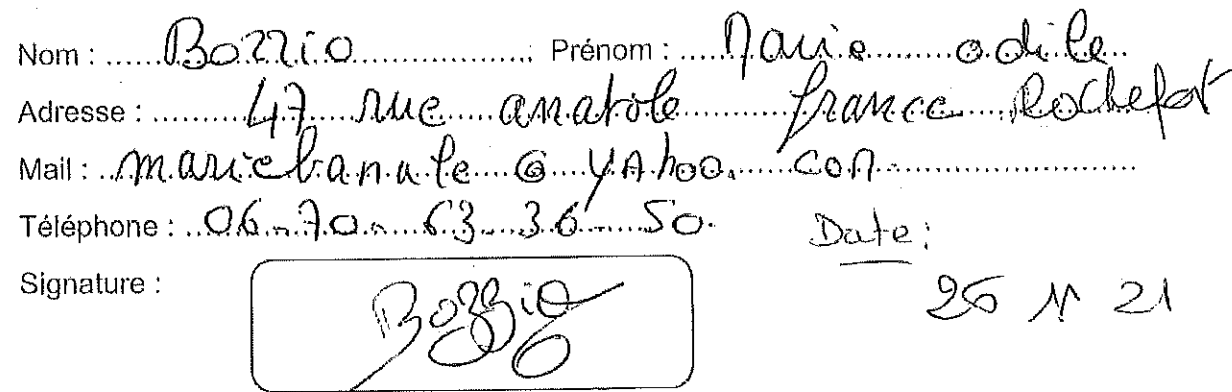 Nom : Bozzio Prénom : Marie odile
Adresse : 47 rue anatole france Rochefort
Mail : @ yAhoo. com
Téléphone : 06 70 63 36 50
Date :
Signature : Bozzio
21